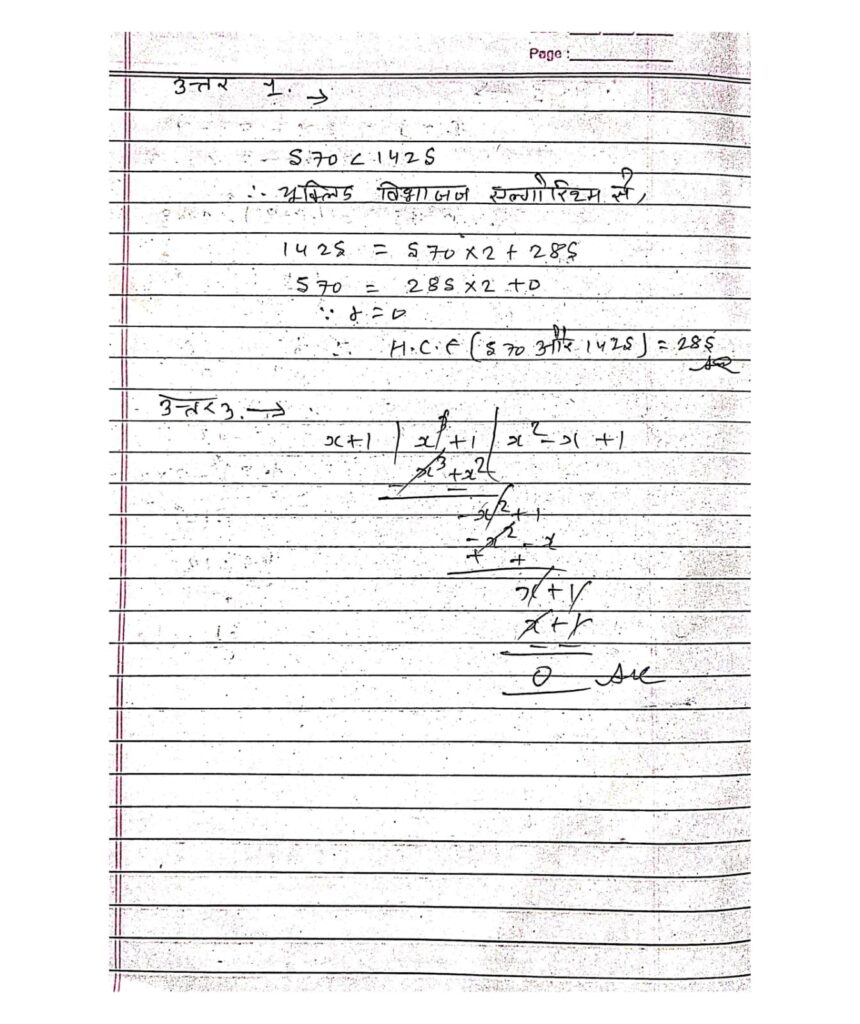 Page :
उत्तर 1. →
570 < 1425
∴ यूक्लिड विभाजन एल्गोरिथम से,
1425 = 570 × 2 + 285
570 = 285 × 2 + 0
∵ r = 0
∴ H.C.F (570 और 1425) = 285
Ans
उत्तर 3. →
x+1 ) x³+1 ( x² - x + 1
x³ + x²
- -
- x² + 1
- x² - x
+ +
x + 1
x + 1
- -
0 Ans